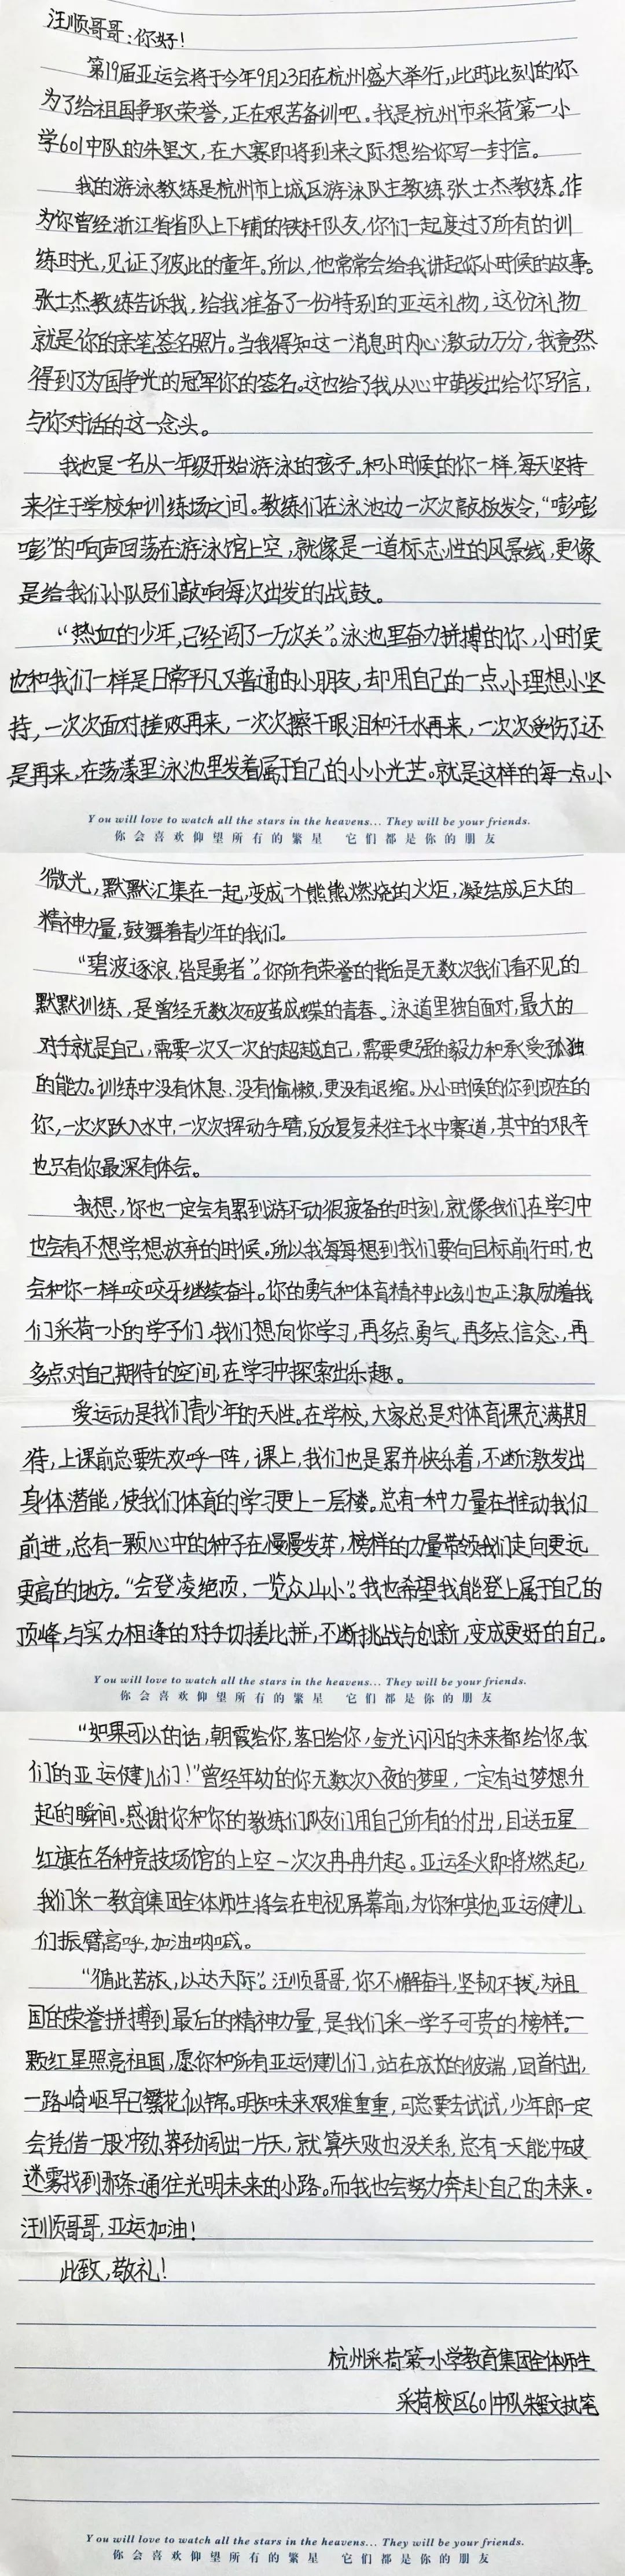 汪顺哥哥:你好!
第19届亚运会将于今年9月23日在杭州盛大举行,此时此刻的你
为了给祖国争取荣誉,正在艰苦备训吧。我是杭州市采荷第一小
学601中队的朱里文,在大赛即将到来之际想给你写一封信。
我的游泳教练是杭州市上城区游泳队主教练张士杰教练。作
为你曾经浙江省省队上下铺的铁杆队友,你们一起度过了所有的训
练时光,见证了彼此的童年。所以,他常常会给我讲起你小时候的故事。
张士杰教练告诉我,给我准备了一份特别的亚运礼物,这份礼物
就是你的亲笔签名照片。当我得知这一消息时内心激动万分,我竟然
得到了为国争光的冠军你的签名。这也给了我从心中萌发出给你写信,
与你对话的这一念头。
我也是一名从一年级开始游泳的孩子。和小时候的你一样,每天坚持
来往于学校和训练场之间。教练们在泳池边一次次敲板发令,“嘭嘭
嘭”的响声回荡在游泳馆上空,就像是一道标志性的风景线,更像
是给我们小队员们敲响每次出发的战鼓。
“热血的少年,已经闯了一万次关”。泳池里奋力拼搏的你,小时侯
也和我们一样是日常平凡又普通的小朋友,却用自己的一点小理想小坚
持,一次次面对挫败再来,一次次擦干眼泪和汗水再来,一次次受伤了还
是再来,在荡漾里泳池里发着属于自己的小小光芒。就是这样的每一点小
You will love to watch all the stars in the heavens... They will be your friends.
你会喜欢仰望所有的繁星 它们都是你的朋友
微光,默默汇集在一起,变成一个熊熊燃烧的火炬,凝结成巨大的
精神力量,鼓舞着青少年的我们。
“碧波逐浪,皆是勇者”。你所有荣誉的背后是无数次我们看不见的
默默训练,是曾经无数次破茧成蝶的青春。泳道里独自面对,最大的
对手就是自己,需要一次又一次的超越自己,需要更强的毅力和承受孤独
的能力。训练中没有休息,没有偷懒,更没有退缩。从小时候的你到现在的
你,一次次跃入水中,一次次挥动手臂,反反复复来往于水中赛道,其中的艰辛
也只有你最深有体会。
我想,你也一定会有累到游不动很疲备的时刻,就像我们在学习中
也会有不想学想放弃的时候。所以我每每想到我们要向目标前行时,也
会和你一样咬咬牙继续奋斗。你的勇气和体育精神此刻也正激励着我
们采荷一小的学子们,我们想向你学习,再多点勇气,再多点信念,再
多点对自己期待的空间,在学习中探索出乐趣。
爱运动是我们青少年的天性。在学校,大家总是对体育课充满期
待,上课前总要先欢呼一阵,课上,我们也是累并快乐着,不断激发出
身体潜能,使我们体育的学习更上一层楼。总有一种力量在推动我们
前进,总有一颗心中的种子在慢慢发芽,榜样的力量带领我们走向更远
更高的地方。“会登凌绝顶,一览众山小”。我也希望我能登上属于自己的
顶峰,与实力相逢的对手切搓比拼,不断挑战与创新,变成更好的自己。
You will love to watch all the stars in the heavens... They will be your friends.
你会喜欢仰望所有的繁星 它们都是你的朋友
“如果可以的话,朝霞给你,落日给你,金光闪闪的未来都给你,我
们的亚运健儿们!”曾经年幼的你无数次入夜的梦里,一定有过梦想升
起的瞬间。感谢你和你的教练们队友们用自己所有的付出,目送五星
红旗在各种竞技场馆的上空一次次冉冉升起。亚运圣火即将燃起,
我们采一教育集团全体师生将会在电视屏幕前,为你和其他亚运健儿
们振臂高呼,加油呐喊。
“循此苦旅,以达天际”。汪顺哥哥,你不懈奋斗,坚韧不拔,为祖
国的荣誉拼搏到最后的精神力量,是我们采一学子可贵的榜样。一
颗红星照亮祖国,愿你和所有亚运健儿们,站在成长的彼端,回首付出,
一路崎岖早已繁花似锦。明知味来艰难重重,可总要去试试,少年郎一定
会凭借一股冲劲、莽劲闯出一片天,就算失败也没关系,总有一天能冲破
迷雾找到那条通往光明未来的小路。而我也会努力奔赴自己的未来。
汪顺哥哥,亚运加油!
此致,敬礼!
杭州采荷第一小学教育集团全体师生
采荷校区601中队朱里文执笔
You will love to watch all the stars in the heavens... They will be your friends.
你会喜欢仰望所有的繁星 它们都是你的朋友